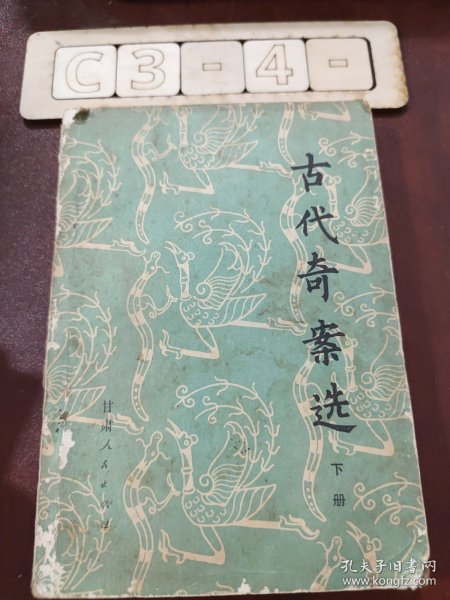 C3-4-
古代奇案选
下册
甘肃人民出版社
孔夫子旧书网
www.kongfz.com